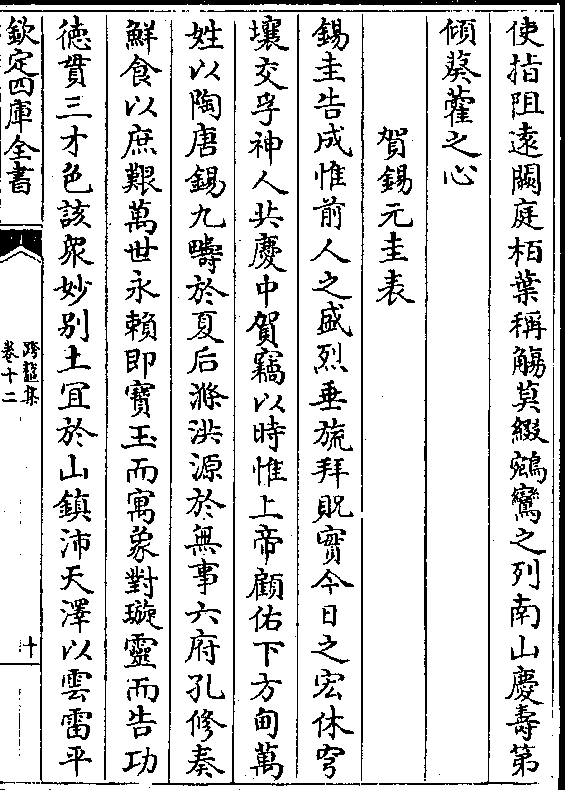 使指阻遠闕庭栢葉稱觴莫綴鵷鸞之列南山慶壽第
傾葵藿之心
賀錫元圭表
錫圭告成惟前人之盛烈垂旒拜貺實今日之宏休穹
壤交孚神人共慶中賀竊以時惟上帝顧佑下方甸萬
姓以陶唐錫九疇於夏后滌洪源於無事六府孔修奏
鮮食以庶艱萬世永賴即寶玉而寓象對璇靈而告功
徳貫三才色該衆妙别土宜於山鎮沛天澤以雲雷平
欽定四庫全書
跨鼇集
卷十二
十